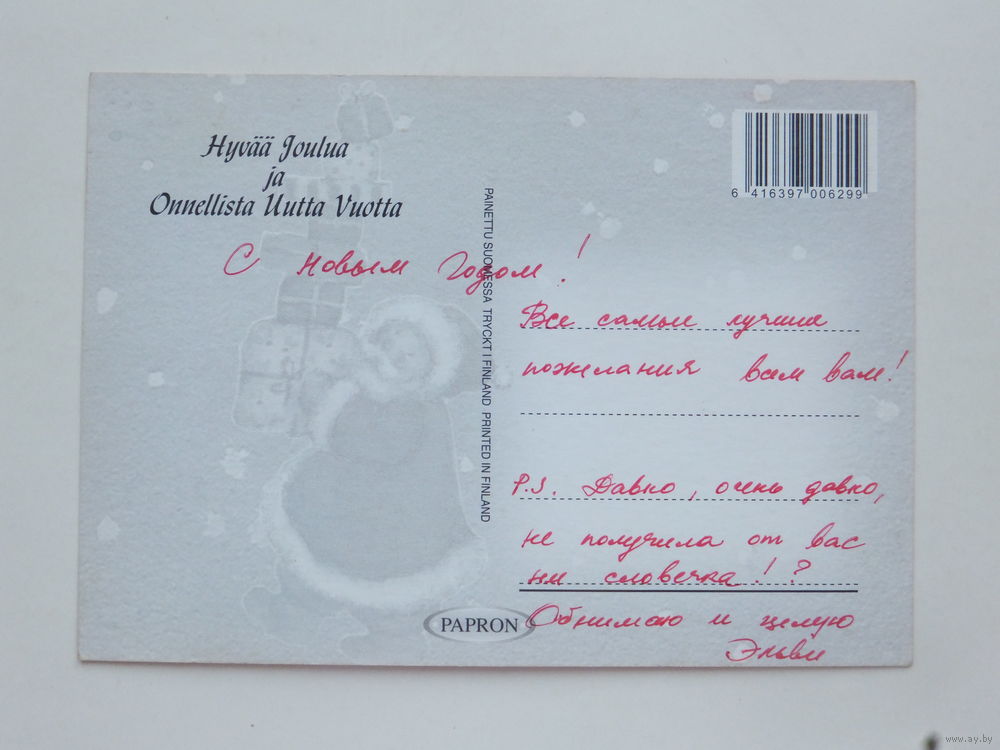 Hyvää Joulua
ja
Onnellista Uutta Vuotta
С новым Годом!
PAINETTU SUOMESSA TRYCKT I FINLAND PRINTED IN FINLAND
6 416397 006299
Все самые лучшие
пожелания всем вам!
P.S. Давно, очень давно,
не получила от вас
ни словечка!?
Обнимаю и целую
Эльви
PAPRON
www.ay.by